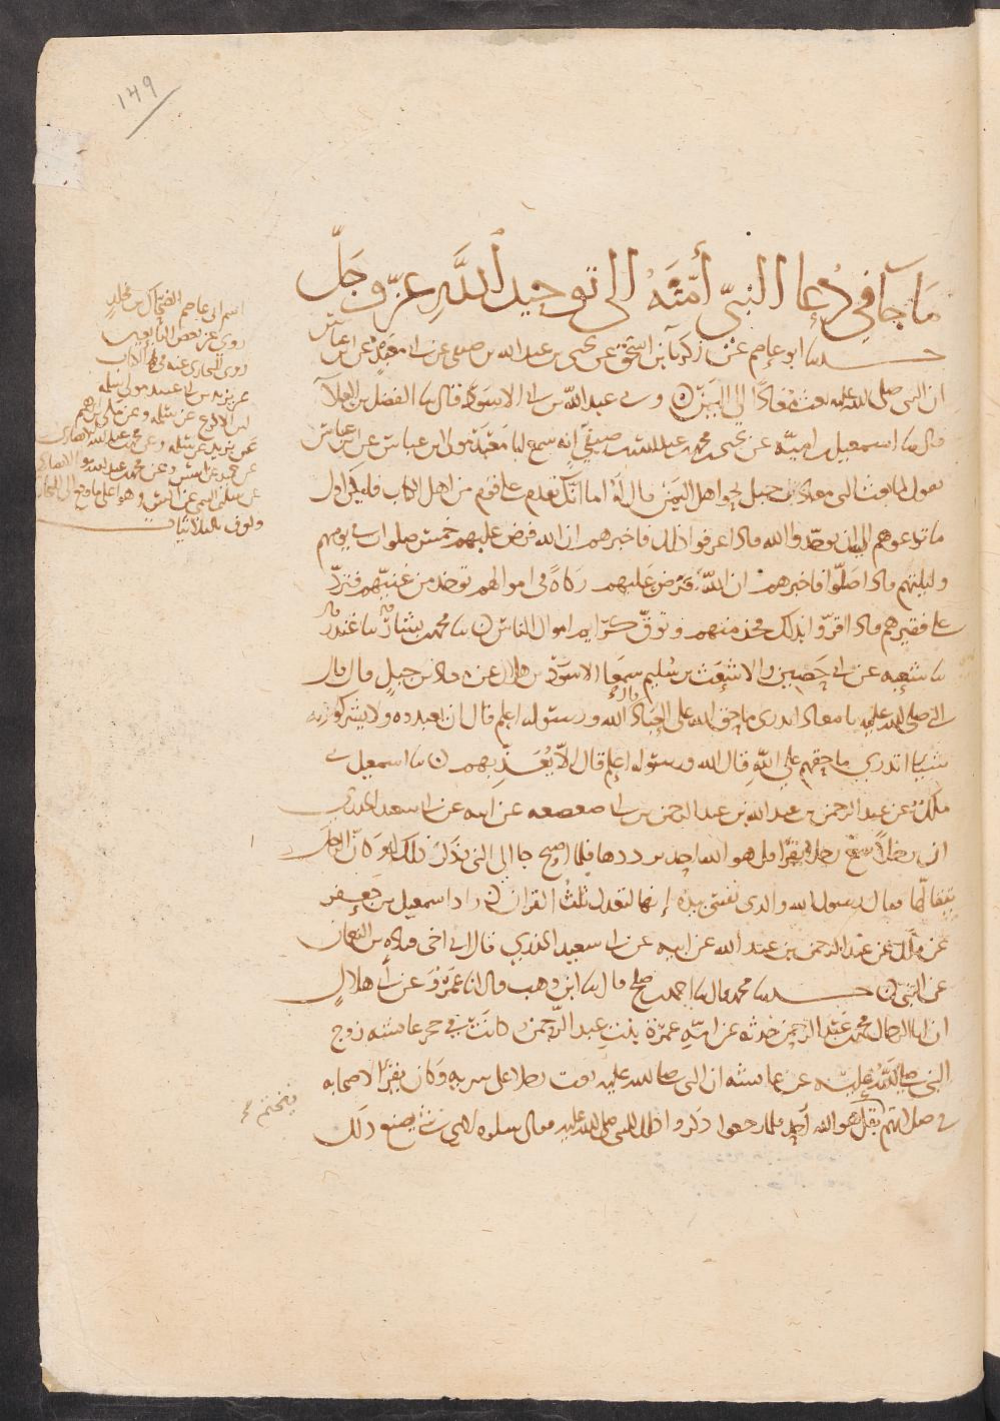 ١٤٩
ما جا في دعا النبي أمته الى توحيد الله عز وجل
حدثنا ابو عاصم عن زكريا بن اسحق عن يحيى بن عبد الله بن صيفي عن ابي معبد عن ابن عباس
ان النبي صلى الله عليه بعث معاذا الى اليمن وني عبد الله بن ابي الاسود قال نا الفضل بن العلا
قال نا اسمعيل بن امية عن يحيى بن محمد بن عبد الله بن صيفي انه سمع ابا معبد مولى ابن عباس عن ابن عباس
يقول لما بعث النبي معاذ بن جبل نحو اهل اليمن قال له اما انك تقدم على قوم من اهل الكتاب فليكن اول
ما تدعوهم الى ان يوحدوا الله فاذا عرفوا ذلك فاخبرهم ان الله فرض عليهم خمس صلوات في يومهم
وليلتهم فاذا صلوا فاخبرهم ان الله فترض عليهم زكاة في اموالهم توخذ من غنيهم فترد
على فقيرهم فاذا اقروا بذلك فخذ منهم وتوق كرايم اموال الناس نا محمد بن بشار قال نا غندر قال
نا شعبه عن ابي حصين والاشعث بن سليم سمعا الاسود بن هلال عن معاذ بن جبل قال قال
النبي صلى الله عليه يا معاذ اتدري ما حق الله على العباد قال الله ورسوله اعلم قال ان يعبدوه ولا يشركوا به
شيئا اتدري ما حقهم على الله قال الله ورسوله اعلم قال الا يعذبهم نا اسمعيل ني
ملك عن عبد الرحمن بن عبد الله بن عبد الرحمن بن ابي صعصعه عن ابيه عن ابي سعيد الخدري
ان رجلا سمع رجلا يقرا قل هو الله احد يرددها فلما اصبح جا الى النبي فذكر ذلك له وكان الرجل
يتقالها فقال رسول الله والذي نفسي بيده إنها لتعدل ثلث القران زاد اسمعيل بن جعفر
عن ملك عن عبد الرحمن بن عبد الله عن ابيه عن ابي سعيد الخدري قال ني اخي قتادة بن النعمان
عن النبي حدثنا محمد قال نا احمد بن صلح قال نا ابن وهب قال انا عمرو عن ابن ابي هلال
ان ابا الرجال محمد بن عبد الرحمن حدثه عن امه عمرة بنت عبد الرحمن وكانت في حجر عائشه زوج
النبي صلى الله عليه عن عائشه ان النبي صلى الله عليه بعث رجلا على سريه وكان يقرا لاصحابه
في صلاتهم بقل هو الله احد فلما رجعوا ذكروا ذلك للنبي صلى الله عليه فقال سلوه لاي شي يصنع ذلك
اسم ابي عاصم الضحاك بن مخلد
روى عن بعض التابعين
روى البخاري عنه في هذا الكتاب
عن يزيد بن ابي عبيد مولى سلمه
ابن الاكوع عن سلمه
فيختم